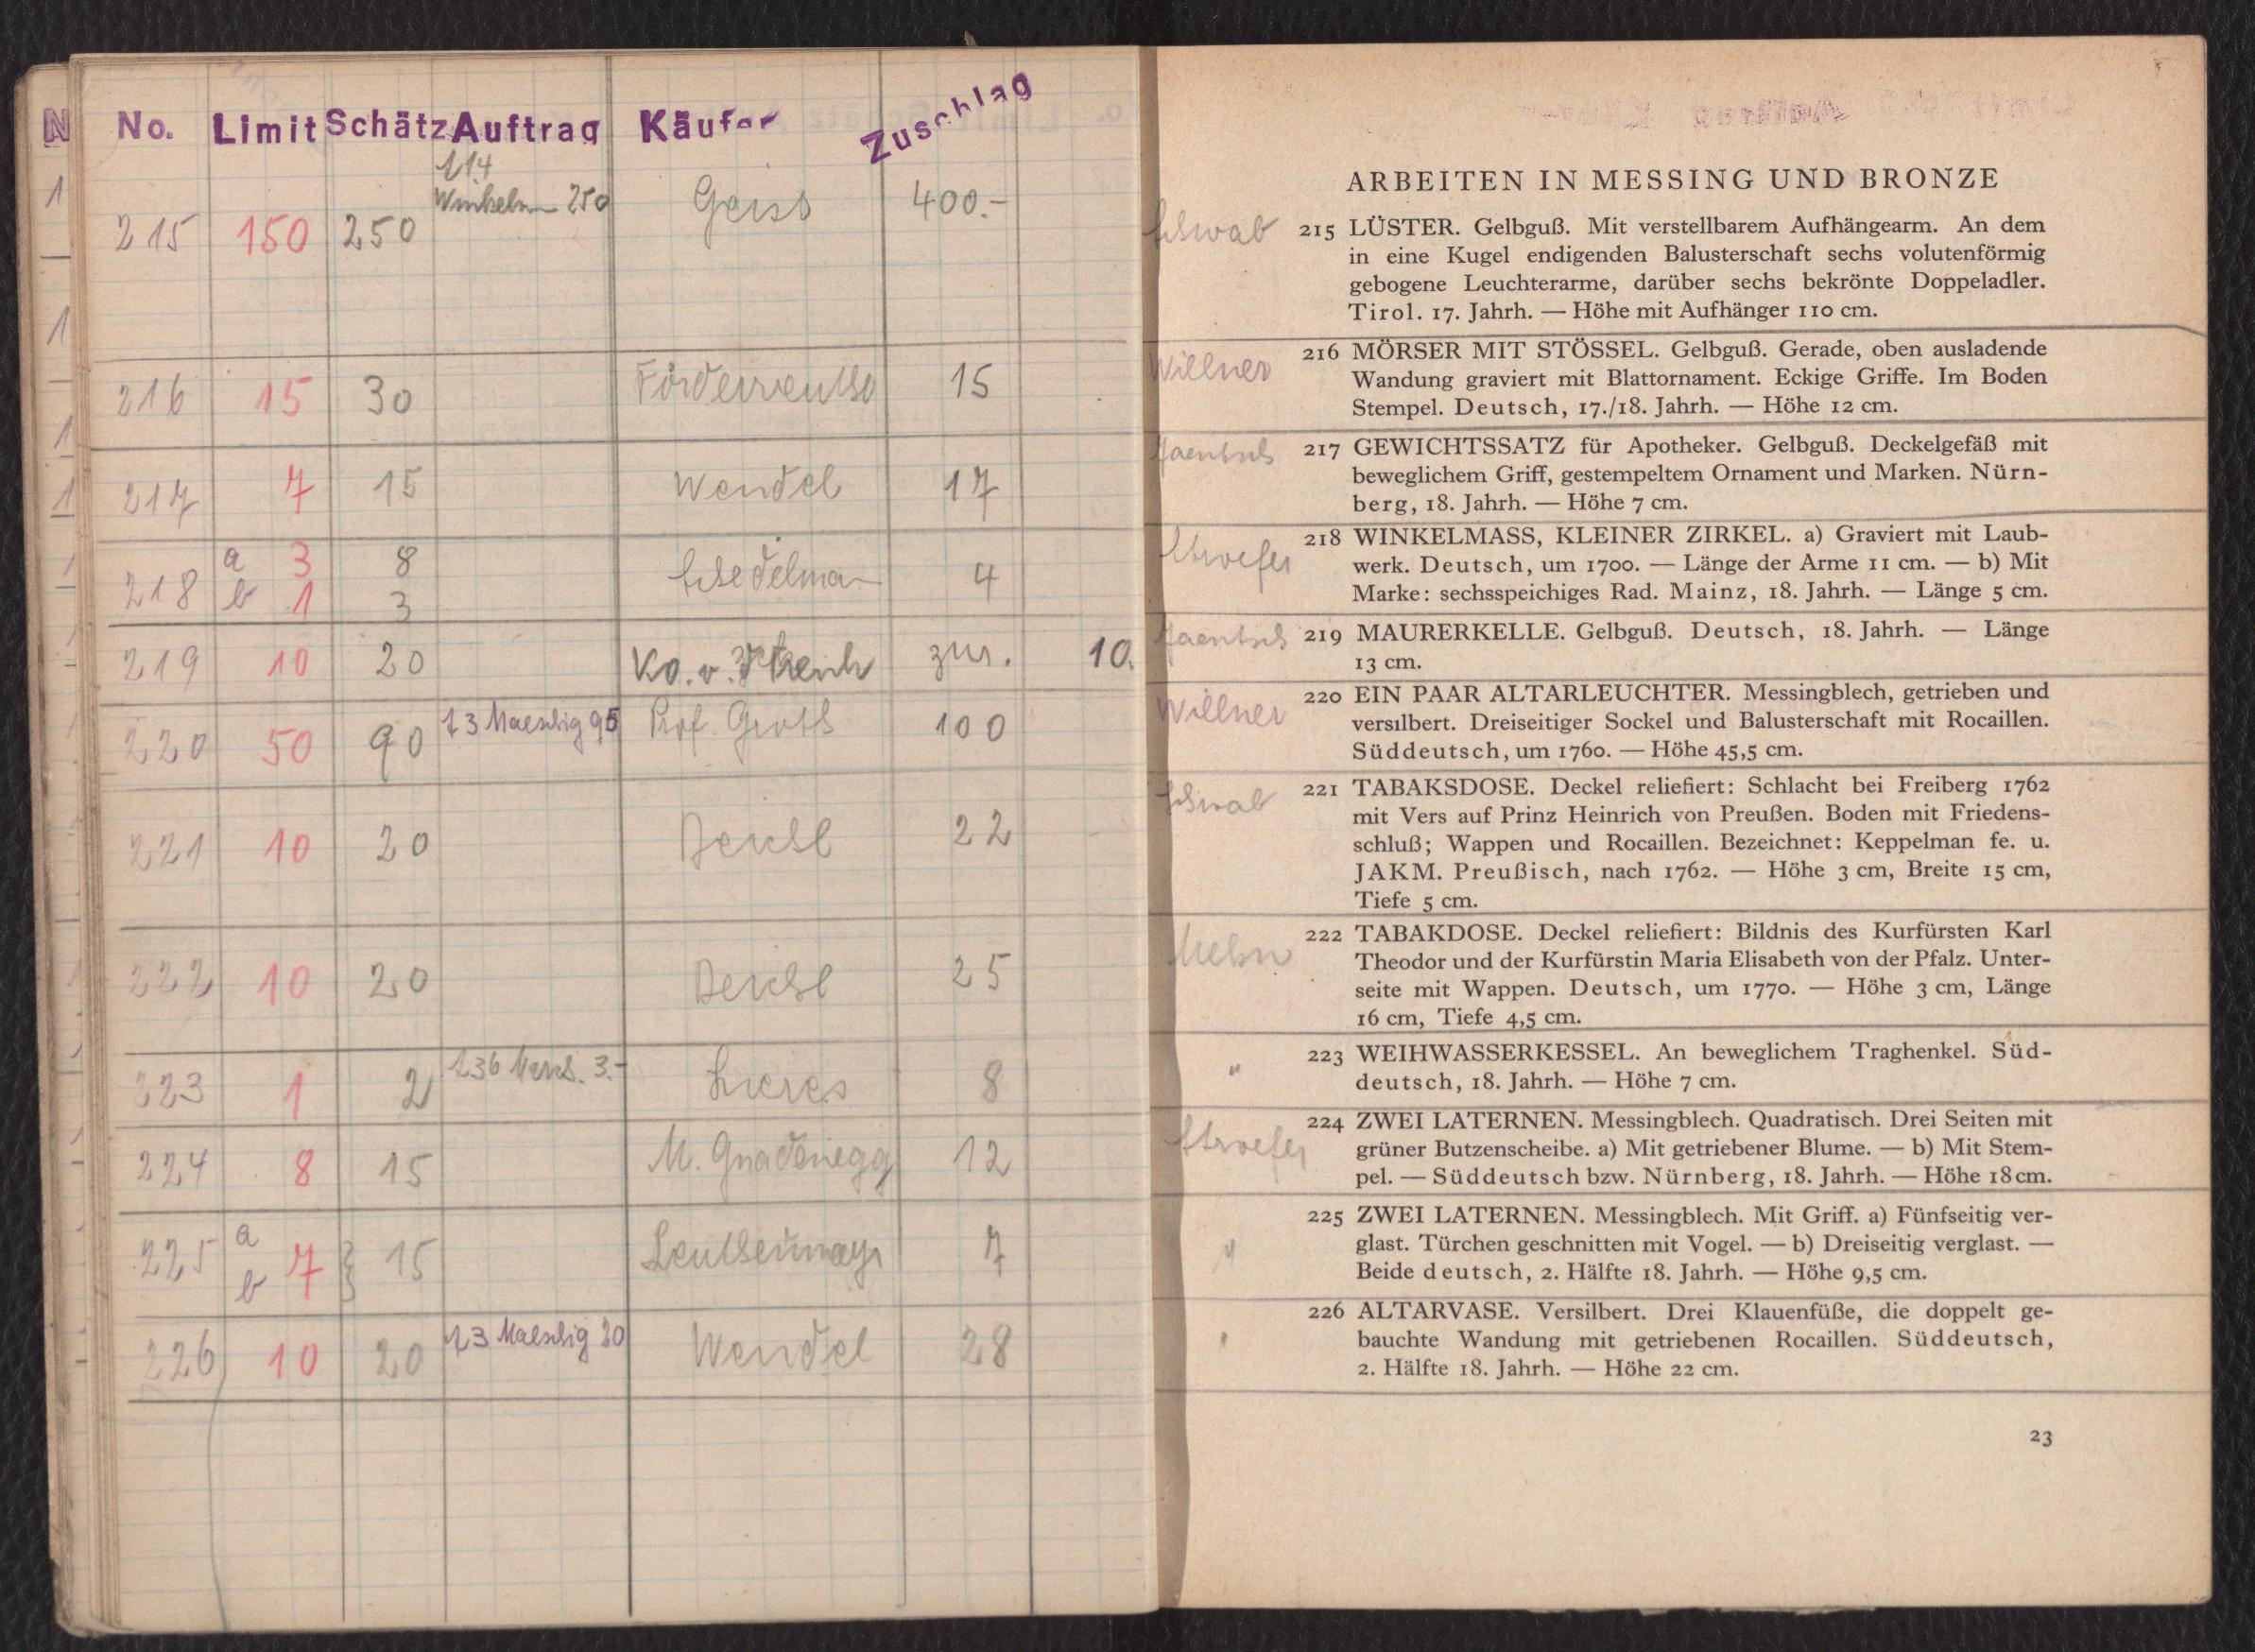 No. Limit Schätz Auftrag Käufer Zuschlag
114
215 150 250 250 Geiss 400.-
216 15 30 15
217 7 15 Wendel 17
218 a 3 8 4
b 1 3
219 10 20 zur. 10.
220 50 90 13 Maeschig 95 Prof. Groth 100
221 10 20 22
222 10 20 25
223 1 2 136 3.- 8
224 8 15 M. Gnadenegg 12
225 a 7 15 7
b
226 10 20 13 Maeschig 20 Wendel 28
ARBEITEN IN MESSING UND BRONZE
215 LÜSTER. Gelbguß. Mit verstellbarem Aufhängearm. An dem
in eine Kugel endigenden Balusterschaft sechs volutenförmig
gebogene Leuchterarme, darüber sechs bekrönte Doppeladler.
Tirol. 17. Jahrh. — Höhe mit Aufhänger 110 cm.
Willner 216 MÖRSER MIT STÖSSEL. Gelbguß. Gerade, oben ausladende
Wandung graviert mit Blattornament. Eckige Griffe. Im Boden
Stempel. Deutsch, 17./18. Jahrh. — Höhe 12 cm.
217 GEWICHTSSATZ für Apotheker. Gelbguß. Deckelgefäß mit
beweglichem Griff, gestempeltem Ornament und Marken. Nürn-
berg, 18. Jahrh. — Höhe 7 cm.
218 WINKELMASS, KLEINER ZIRKEL. a) Graviert mit Laub-
werk. Deutsch, um 1700. — Länge der Arme 11 cm. — b) Mit
Marke: sechsspeichiges Rad. Mainz, 18. Jahrh. — Länge 5 cm.
219 MAURERKELLE. Gelbguß. Deutsch, 18. Jahrh. — Länge
13 cm.
Willner 220 EIN PAAR ALTARLEUCHTER. Messingblech, getrieben und
versilbert. Dreiseitiger Sockel und Balusterschaft mit Rocaillen.
Süddeutsch, um 1760. — Höhe 45,5 cm.
221 TABAKSDOSE. Deckel reliefiert: Schlacht bei Freiberg 1762
mit Vers auf Prinz Heinrich von Preußen. Boden mit Friedens-
schluß; Wappen und Rocaillen. Bezeichnet: Keppelman fe. u.
JAKM. Preußisch, nach 1762. — Höhe 3 cm, Breite 15 cm,
Tiefe 5 cm.
222 TABAKDOSE. Deckel reliefiert: Bildnis des Kurfürsten Karl
Theodor und der Kurfürstin Maria Elisabeth von der Pfalz. Unter-
seite mit Wappen. Deutsch, um 1770. — Höhe 3 cm, Länge
16 cm, Tiefe 4,5 cm.
" 223 WEIHWASSERKESSEL. An beweglichem Traghenkel. Süd-
deutsch, 18. Jahrh. — Höhe 7 cm.
224 ZWEI LATERNEN. Messingblech. Quadratisch. Drei Seiten mit
grüner Butzenscheibe. a) Mit getriebener Blume. — b) Mit Stem-
pel. — Süddeutsch bzw. Nürnberg, 18. Jahrh. — Höhe 18 cm.
225 ZWEI LATERNEN. Messingblech. Mit Griff. a) Fünfseitig ver-
" glast. Türchen geschnitten mit Vogel. — b) Dreiseitig verglast. —
Beide deutsch, 2. Hälfte 18. Jahrh. — Höhe 9,5 cm.
226 ALTARVASE. Versilbert. Drei Klauenfüße, die doppelt ge-
bauchte Wandung mit getriebenen Rocaillen. Süddeutsch,
2. Hälfte 18. Jahrh. — Höhe 22 cm.
23